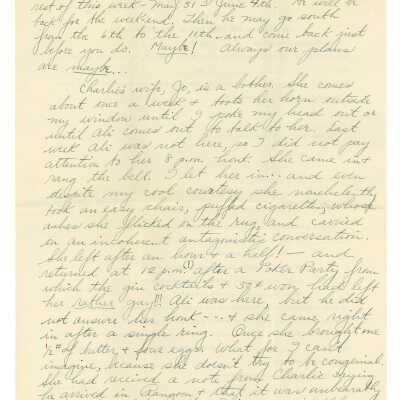 rest of this week - May 31 to June 4th. He will be
back for the weekend, then he may go south
from the 6th to the 11th - and come back just
before you do. Maybe! Always our plans
are maybe...
Charlie's wife, Jo, is a bother. She comes
about once a week & toots her horn outside
my window until I poke my head out or
until Ali comes out to talk to her. Last
week Ali was not here, so I did not pay
attention to her 8 p.m. honk. She came in &
rang the bell. I let her in... and even
despite my cool courtesy she nonchalantly
took an easy chair, puffed cigarettes, whose
ashes she flicked on the rug, and carried
on an incoherent antagonistic conversation.
She left after an hour & a half! - and
returned at 12 p.m.(!) after a Poker Party from
which the gin cocktails & 33¢ won had left
her rather gay!!! Ali was here, but he did
not answer her honk - - - & she came right
in after a single ring. Once she brought me
1/2# of butter & four eggs. What for I can't
imagine, because she doesn't try to be congenial.
She had received a note from Charlie saying
he arrived in Rangoon & that it was unbearably